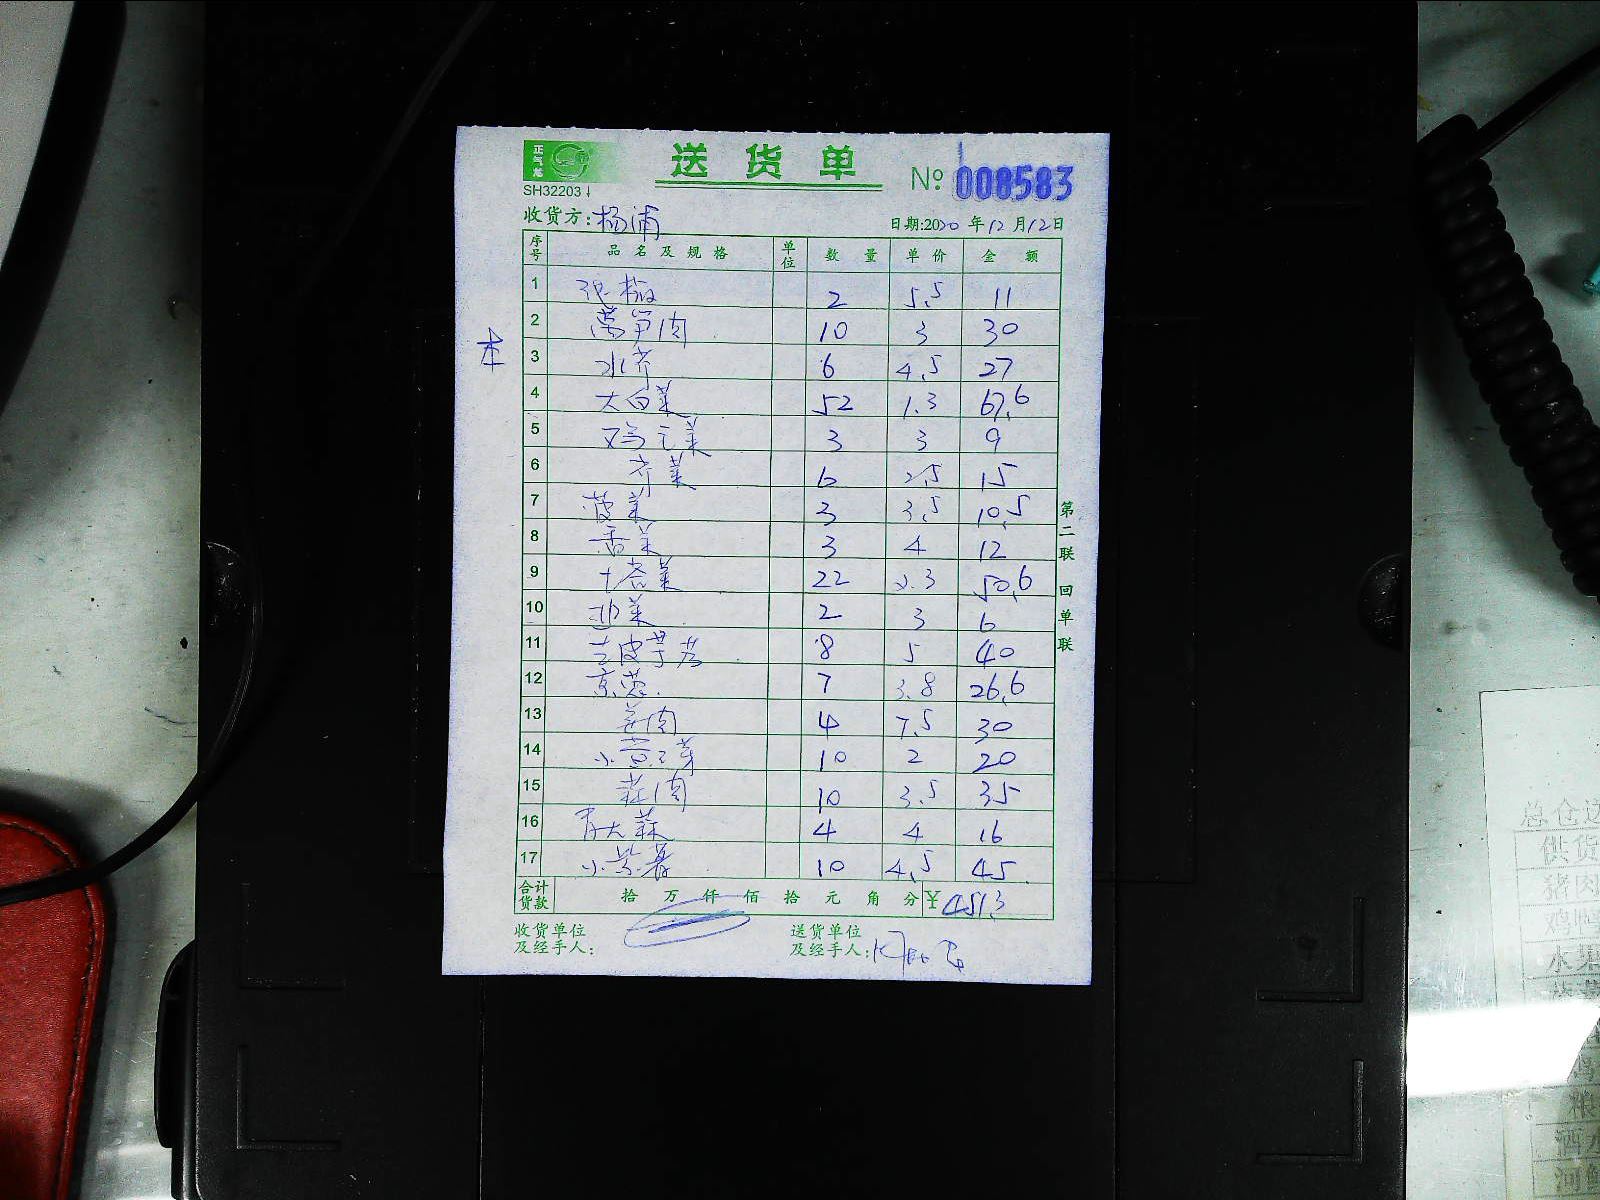 正气龙
送货单
SH32203
No 008583
收货方:杨浦
日期:2020年12月12日
序号 品名及规格 单位 数量 单价 金额
1 2 5.5 11
2 莴笋肉 10 3 30
3 水芹 6 4.5 27
4 大白菜 52 1.3 67.6
5 鸡毛菜 3 3 9
6 芹菜 6 2.5 15
7 菠菜 3 3.5 10.5
8 香菜 3 4 12
9 塔菜 22 2.3 50.6
10 韭菜 2 3 6
11 去皮芋艿 8 5 40
12 京葱 7 3.8 26.6
13 姜肉 4 7.5 30
14 小黄豆芽 10 2 20
15 蒜肉 10 3.5 35
16 青大蒜 4 4 16
17 小紫薯 10 4.5 45
合计货款 拾万仟佰拾元角分 ¥451.3
收货单位及经手人:
送货单位及经手人:
第二联 回单联
总仓
供货
猪肉
鸡鸭
水果